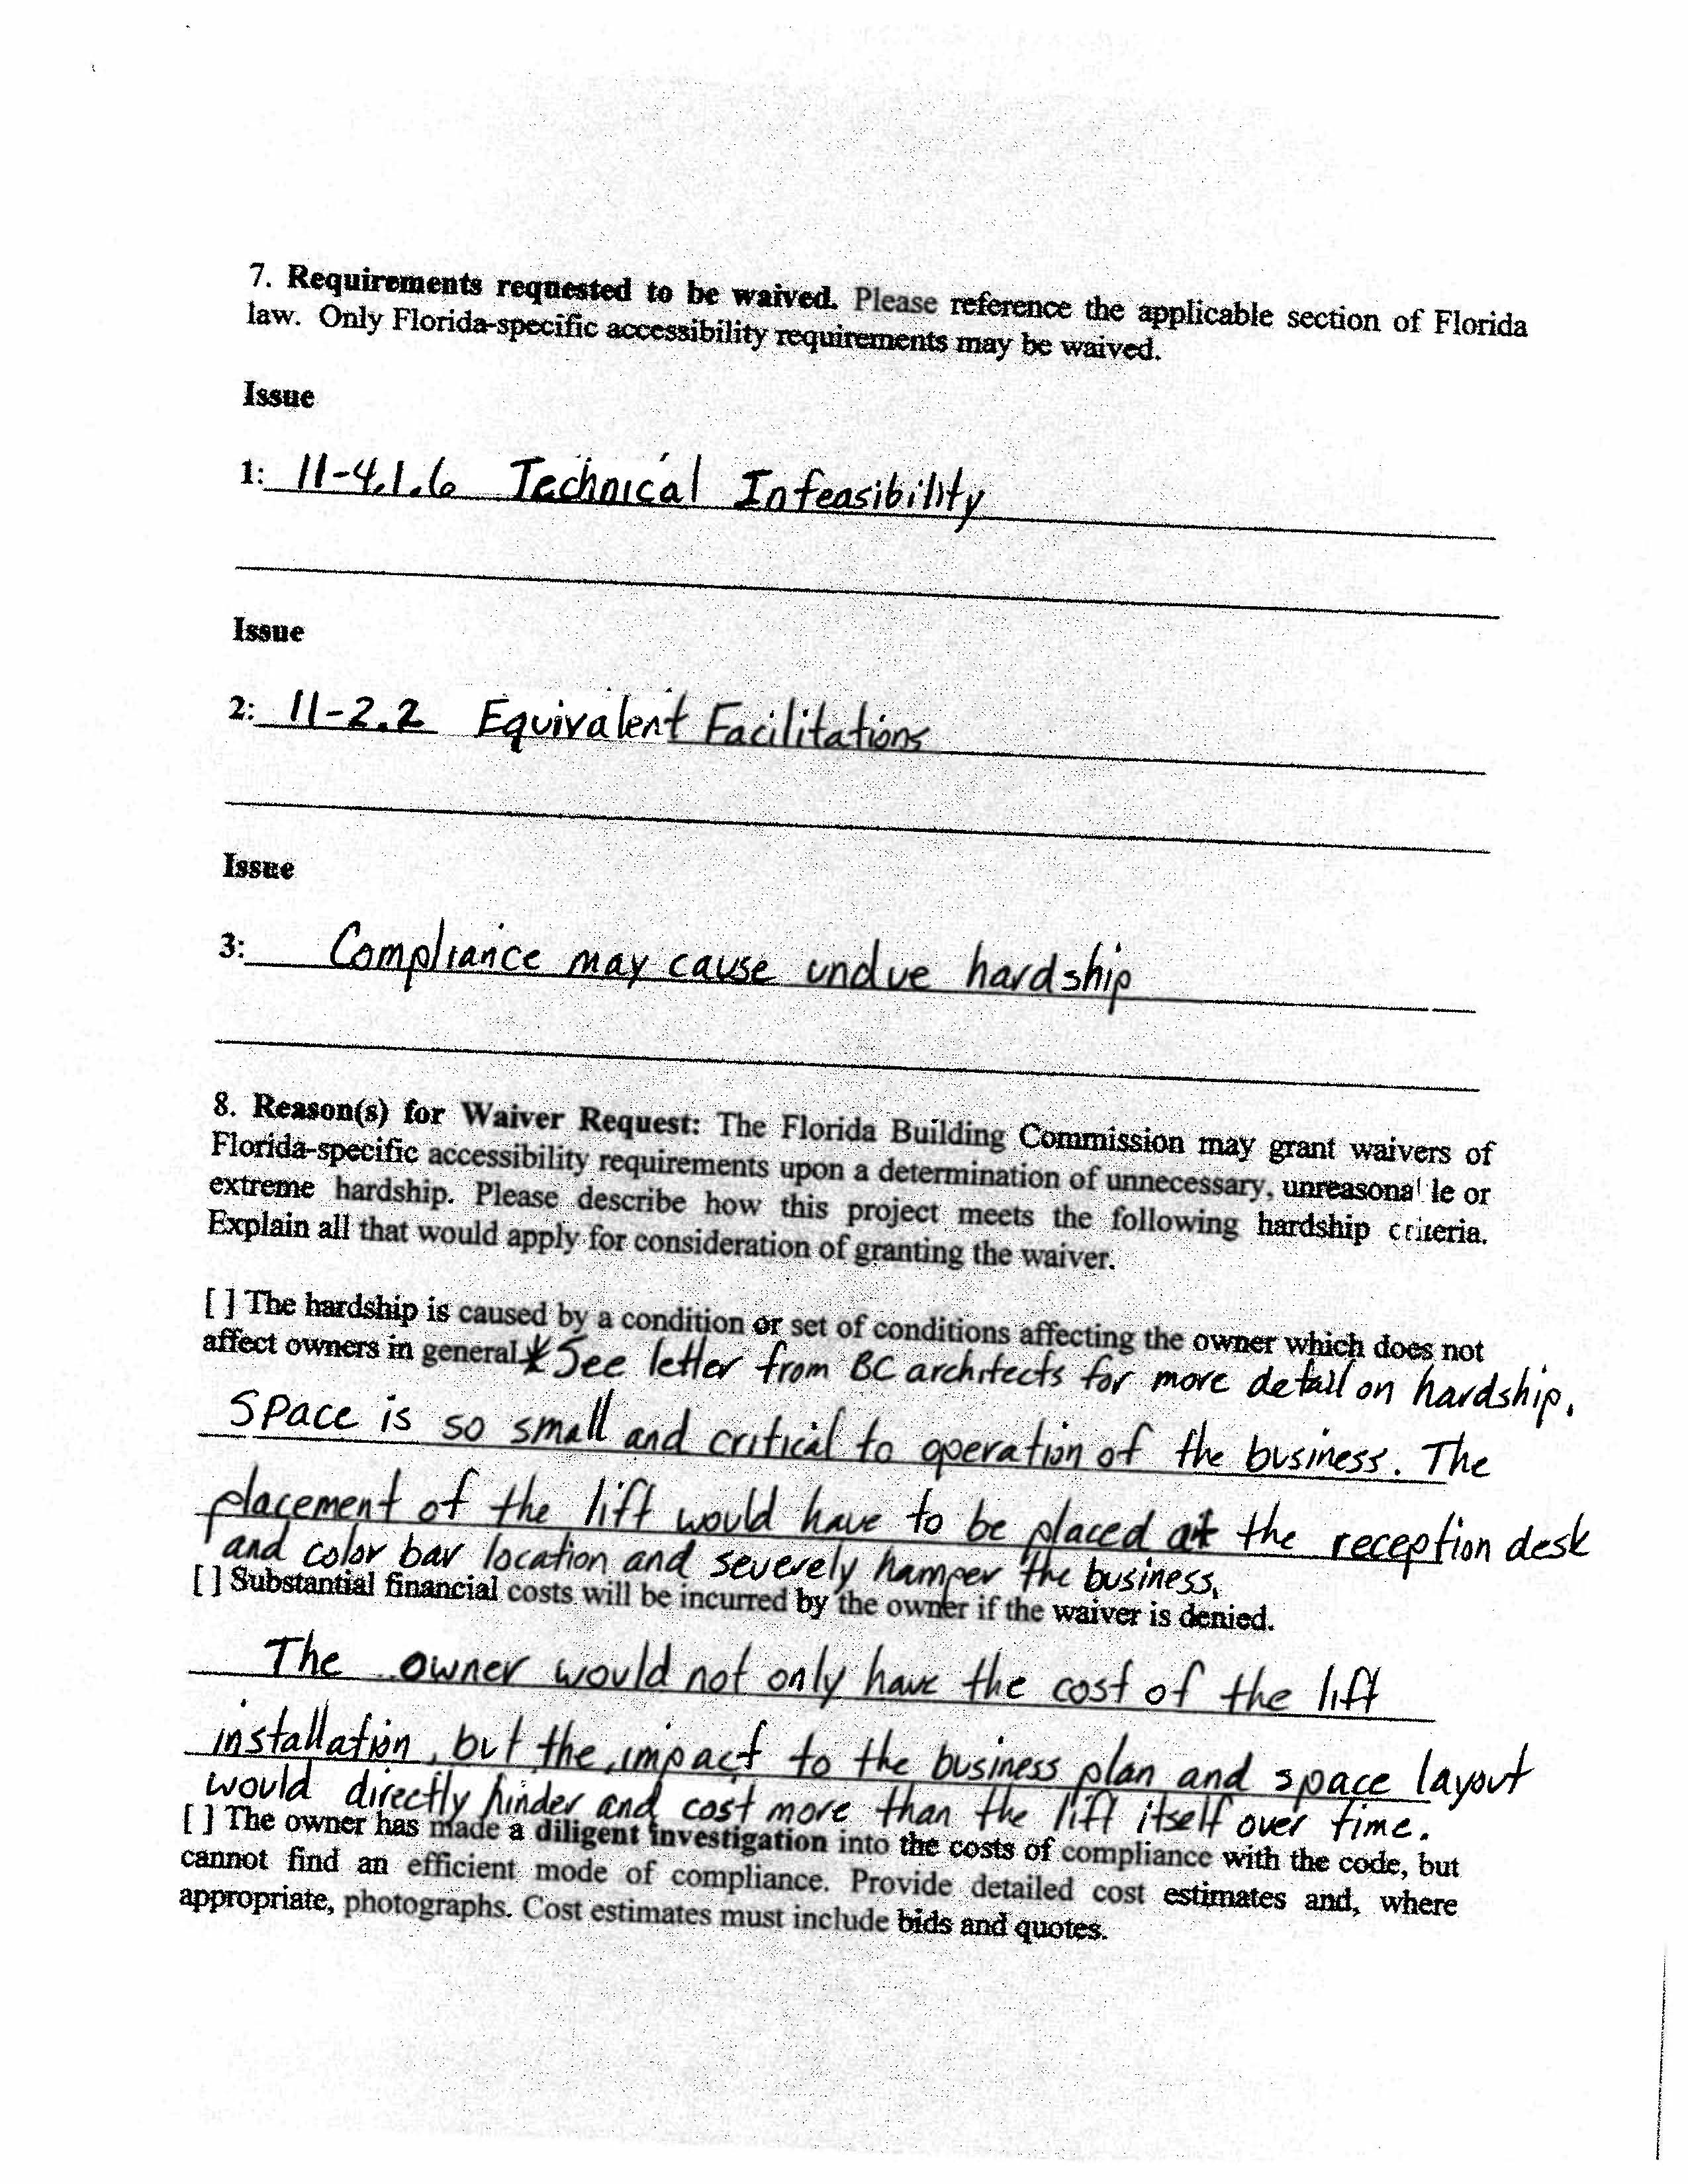 7. Requirements requested to be waived. Please reference the applicable section of Florida
law. Only Florida-specific accessibility requirements may be waived.
Issue
1: 11-4.1.6 Technical Infeasibility
Issue
2: 11-2.2 Equivalent Facilitations
Issue
3: Compliance may cause undue hardship
8. Reason(s) for Waiver Request: The Florida Building Commission may grant waivers of
Florida-specific accessibility requirements upon a determination of unnecessary, unreasonable or
extreme hardship. Please describe how this project meets the following hardship criteria.
Explain all that would apply for consideration of granting the waiver.
[ ] The hardship is caused by a condition or set of conditions affecting the owner which does not
affect owners in general. * See letter from BC architects for more detail on hardship.
Space is so small and critical to operation of the business. The
placement of the lift would have to be placed at the reception desk
and color bar location and severely hamper the business.
[ ] Substantial financial costs will be incurred by the owner if the waiver is denied.
The owner would not only have the cost of the lift
installation, but the impact to the business plan and space layout
would directly hinder and cost more than the lift itself over time.
[ ] The owner has made a diligent investigation into the costs of compliance with the code, but
cannot find an efficient mode of compliance. Provide detailed cost estimates and, where
appropriate, photographs. Cost estimates must include bids and quotes.